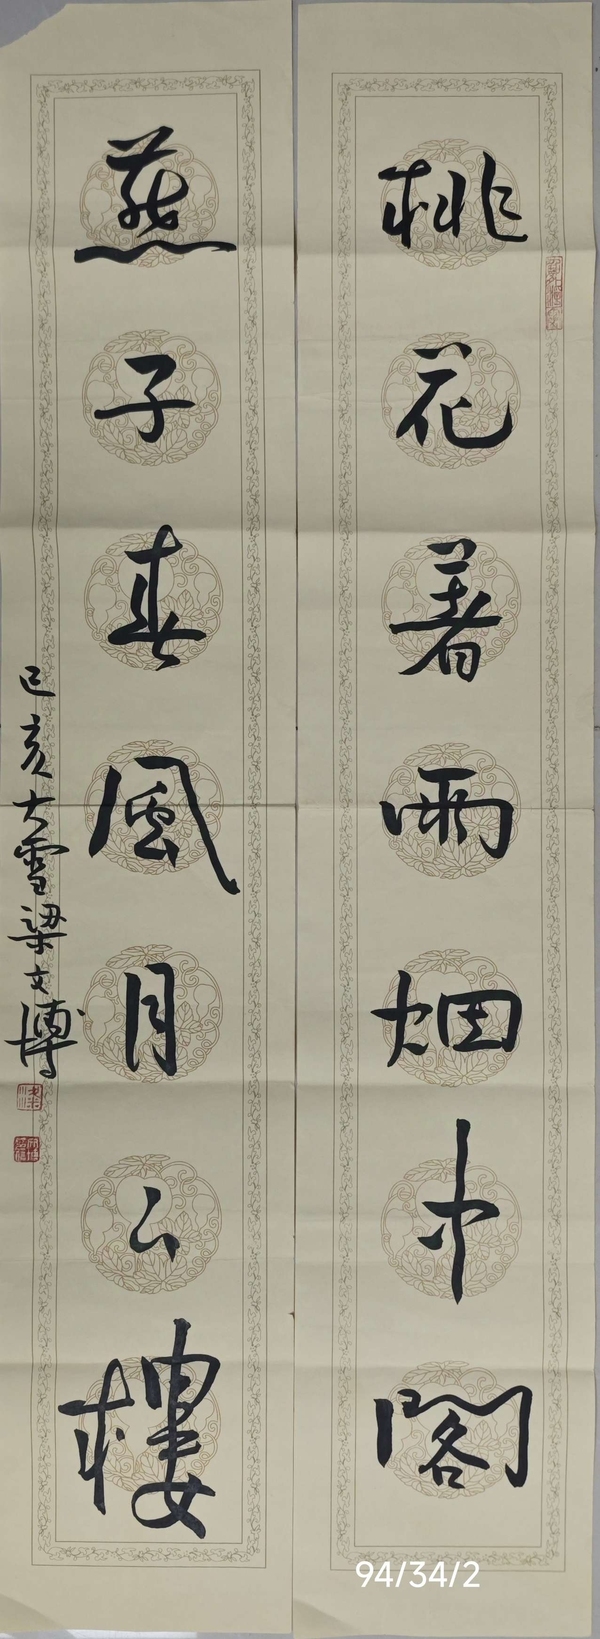 桃花著雨烟中閣
燕子春風月下樓
己亥大雪梁文博
94/34/2